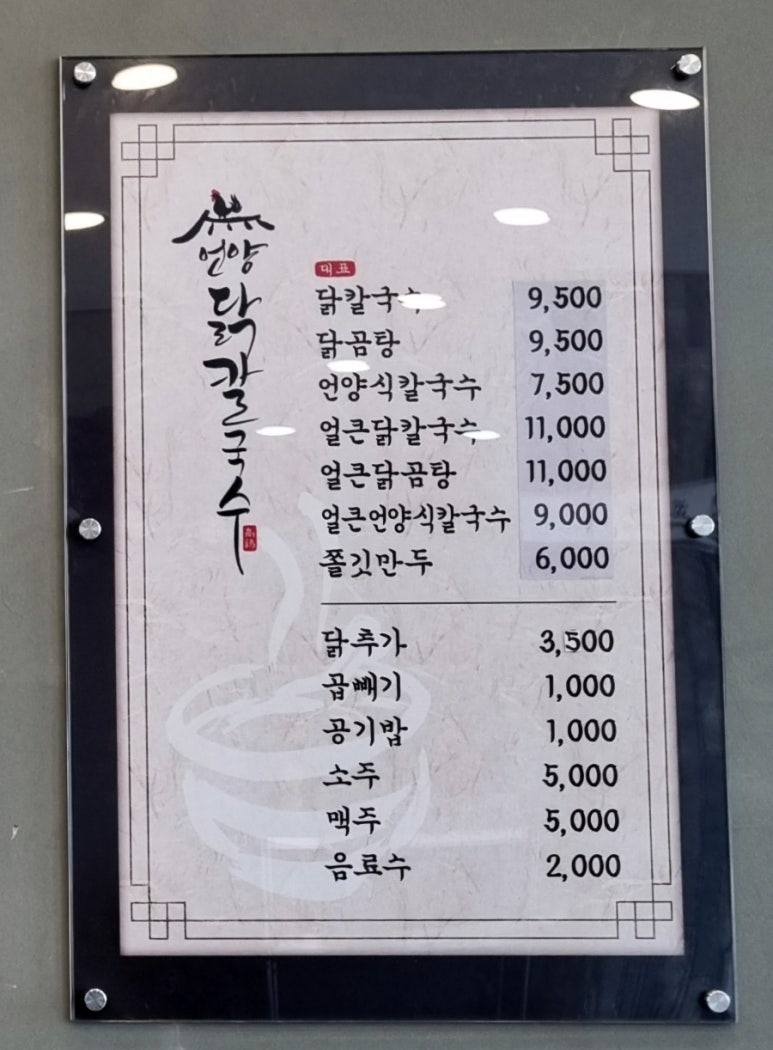 언양
닭칼국수
대표
닭칼국수 9,500
닭곰탕 9,500
언양식칼국수 7,500
얼큰닭칼국수 11,000
얼큰닭곰탕 11,000
얼큰언양식칼국수 9,000
쫄깃만두 6,000
닭추가 3,500
곱빼기 1,000
공기밥 1,000
소주 5,000
맥주 5,000
음료수 2,000